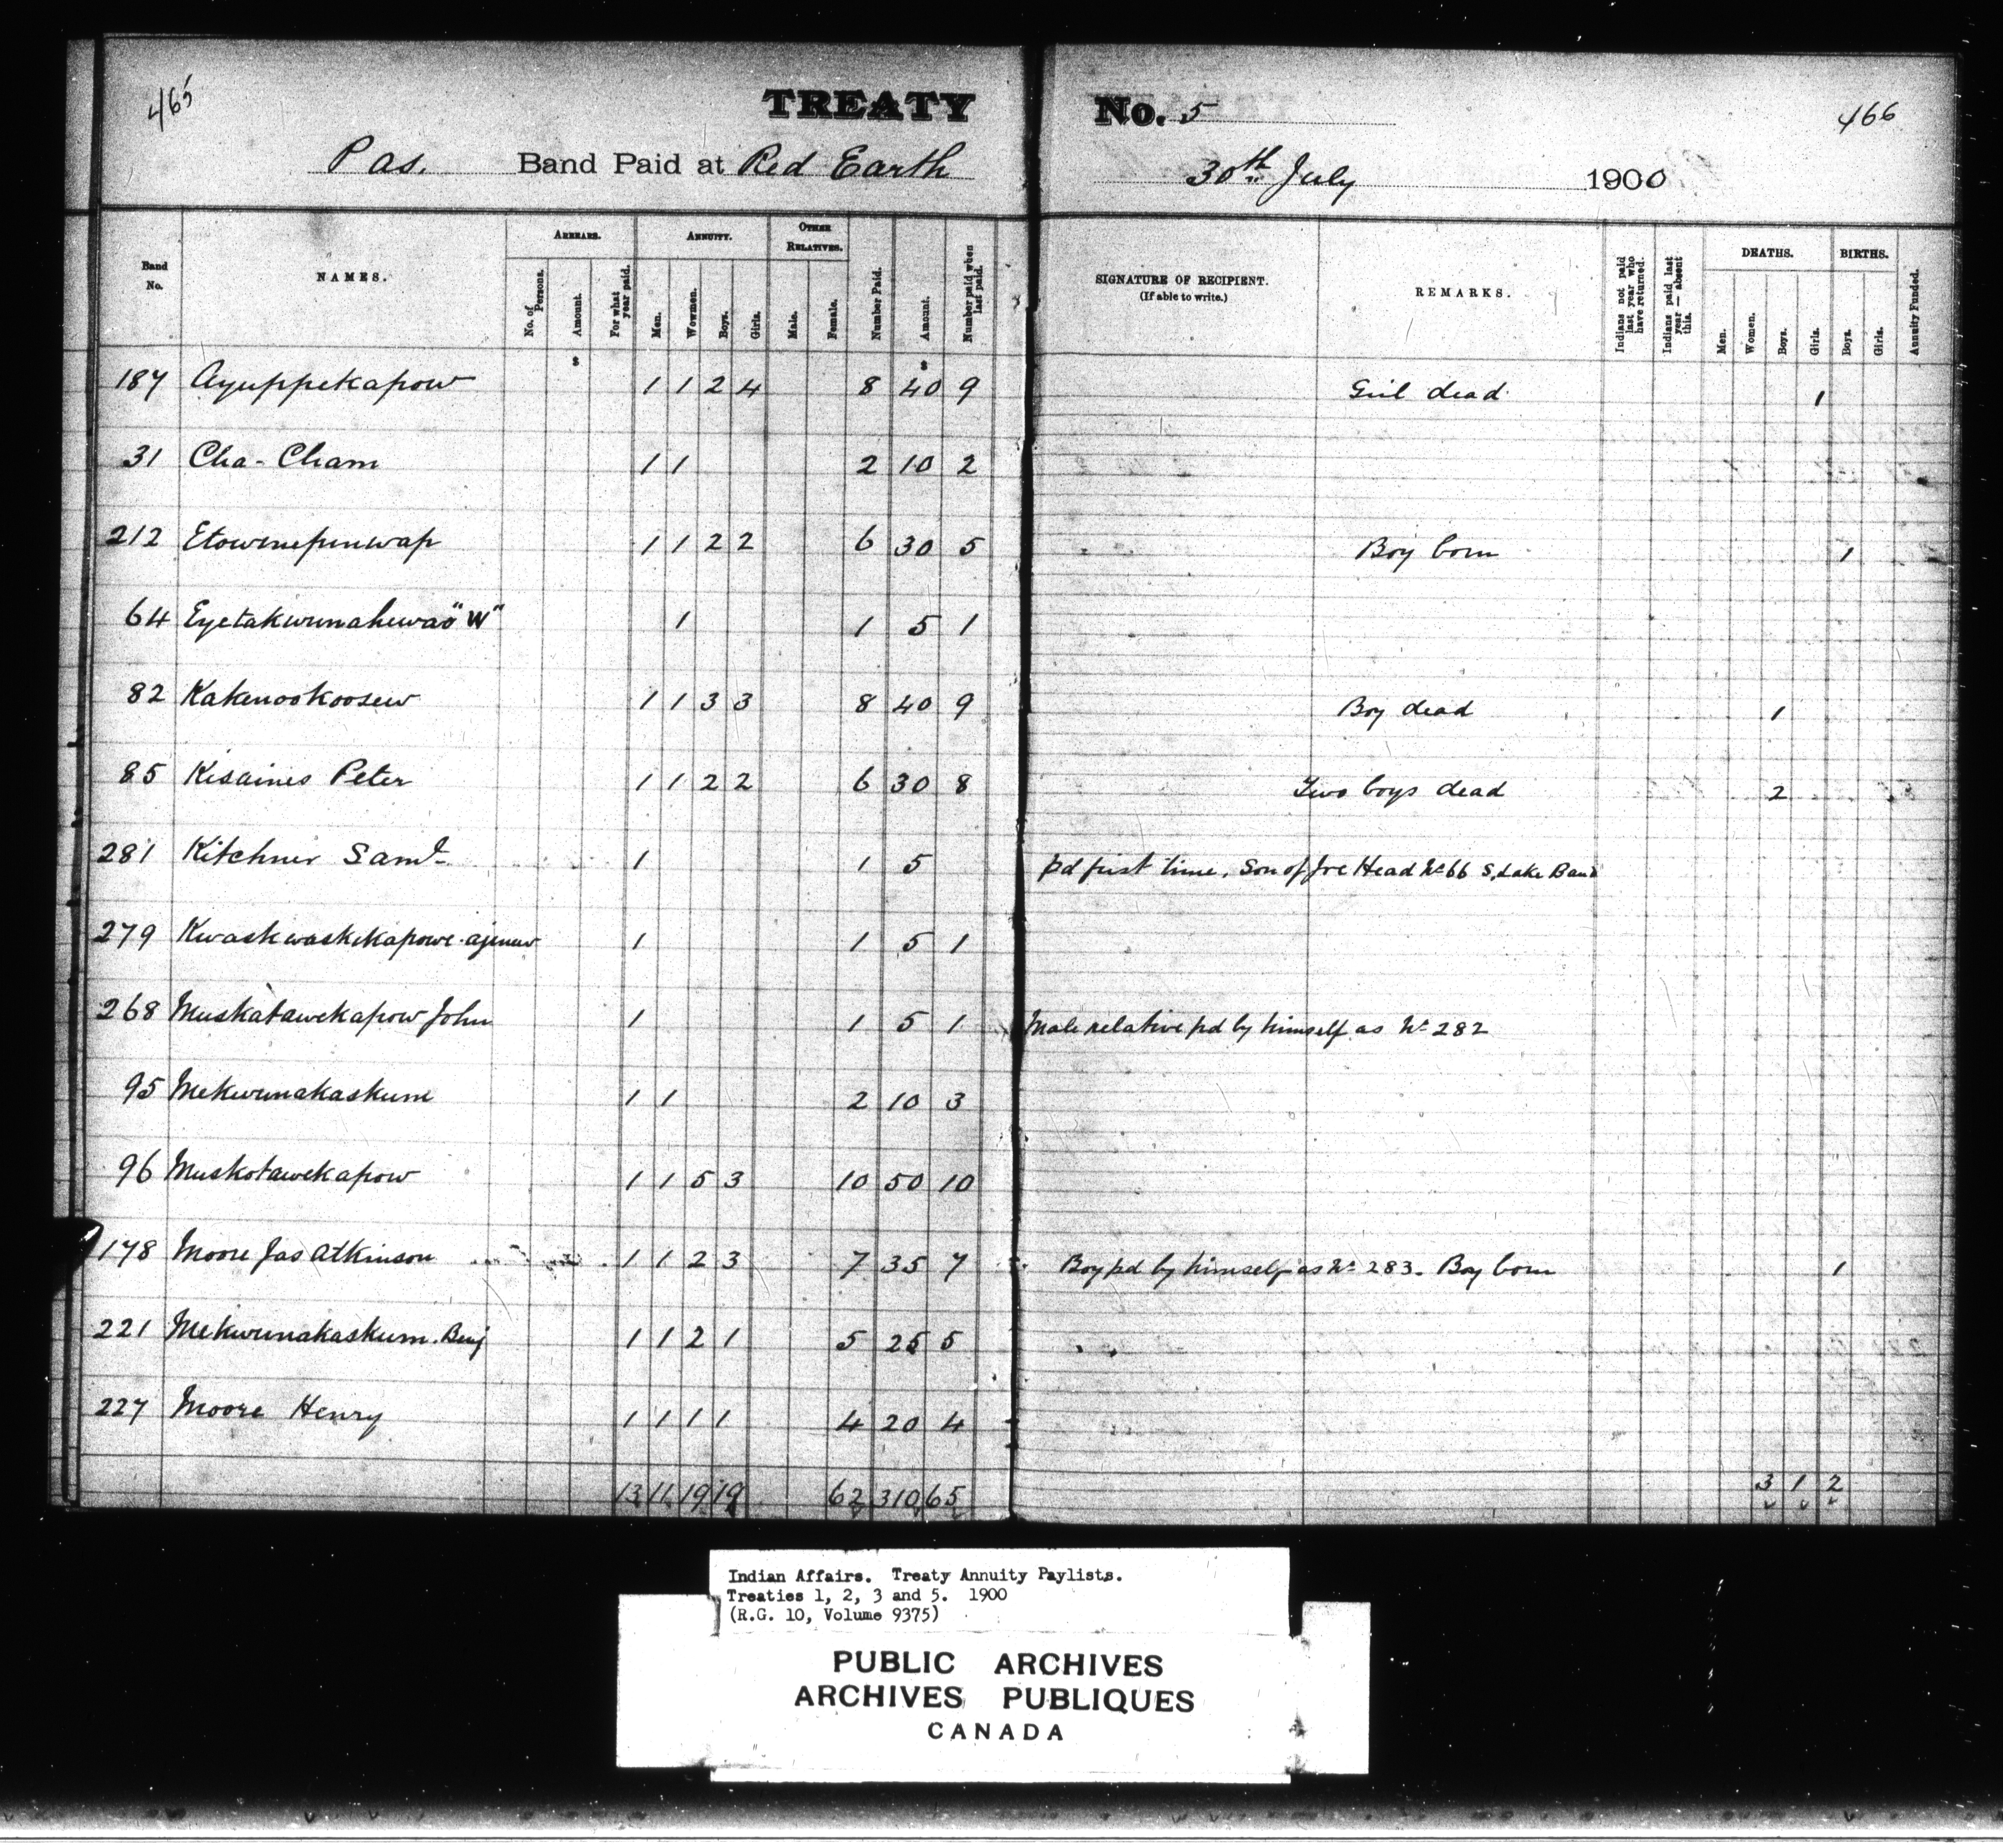 465
TREATY No. 5
466
Pas. Band Paid at Red Earth
30th July 1900
Band No.
NAMES.
ARREARS.
No. of Persons.
Amount.
For what year paid.
ANNUITY.
Men.
Wowmen.
Boys.
Girls.
OTHER RELATIVES.
Male.
Female.
Number Paid.
Amount.
Number paid when last paid.
SIGNATURE OF RECIPIENT.
(If able to write.)
REMARKS.
Indians not paid last year who have returned.
Indians paid last year — absent this.
DEATHS.
Men.
Women.
Boys.
Girls.
BIRTHS.
Boys.
Girls.
Annuity Funded.
$ $
187 Ayuppekapow 1 1 2 4 8 40 9 Girl dead 1
31 Cha-Cham 1 1 2 10 2
212 Etowenepinwap 1 1 2 2 6 30 5 Boy born 1
64 Eyetakwunahewao "W" 1 1 5 1
82 Kakenookoosew 1 1 3 3 8 40 9 Boy dead 1
85 Kisaines Peter 1 1 2 2 6 30 8 Two boys dead 2
281 Kitchner Saml 1 1 5 pd first time. Son of Joe Head No 66 S. Lake Band
279 Kwaskwaskekapowe-ajenew 1 1 5 1
268 Muskatawekapow John 1 1 5 1 Male relative pd by himself as No 282
95 Mekwunakaskum 1 1 2 10 3
96 Muskotawekapow 1 1 5 3 10 50 10
178 Moore Jas Atkinson 1 1 2 3 7 35 7 Boy pd by himself as No 283. Boy born 1
221 Mekwunakaskum. Benj 1 1 2 1 5 25 5
227 Moore Henry 1 1 1 1 4 20 4
13 11 19 19 62 310 65 3 1 2
Indian Affairs. Treaty Annuity Paylists.
Treaties 1, 2, 3 and 5. 1900
(R.G. 10, Volume 9375)
PUBLIC ARCHIVES
ARCHIVES PUBLIQUES
CANADA